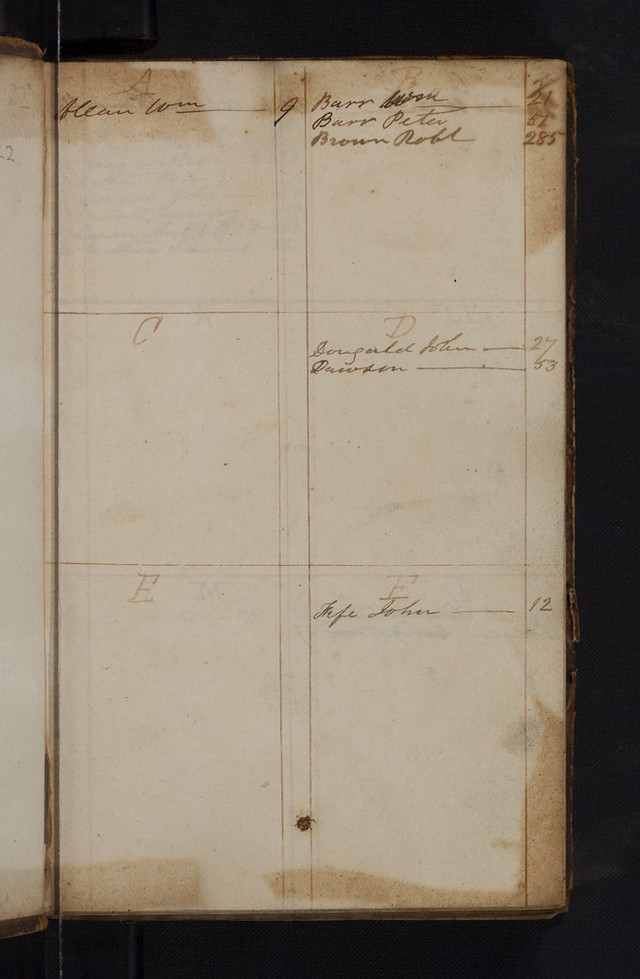 A
Allan Wm 9
B
Barr Wm 21
Barr Peter 51
Brown Robt 285
C
D
Dougald John 27
Dawson 53
E
F
Fife John 12